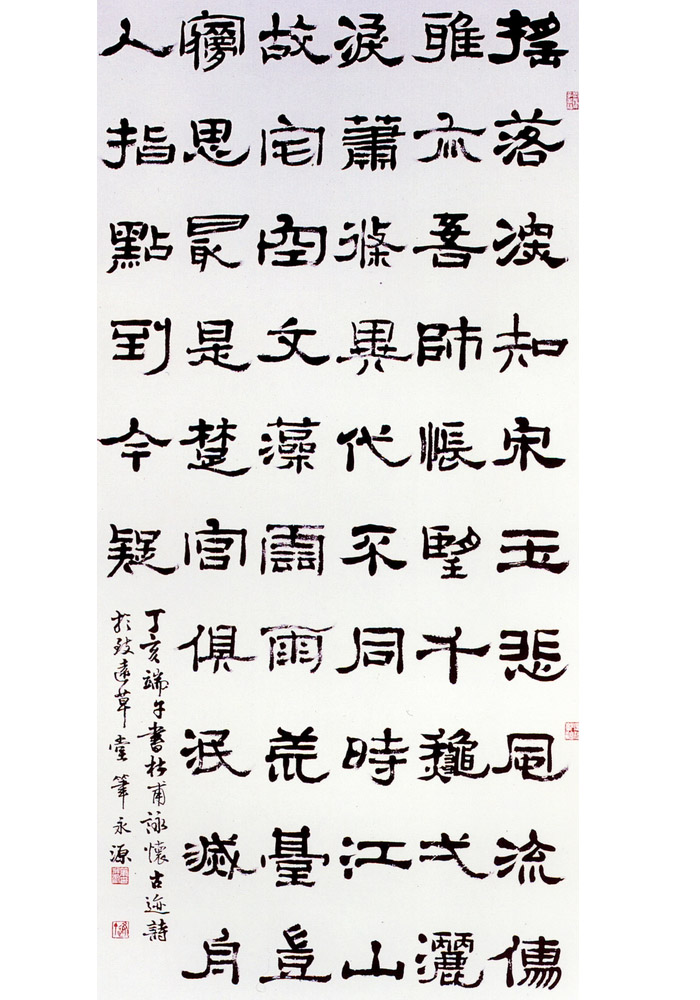 搖落深知宋玉悲風流儒
雅亦吾師悵望千龝弌灑
淚蕭條異代不同時江山
故宅空文藻雲雨荒臺豈
夢思最是楚宮俱泯滅舟
人指點到今疑
丁亥端午書杜甫詠懷古迹詩
於致遠草堂 永源